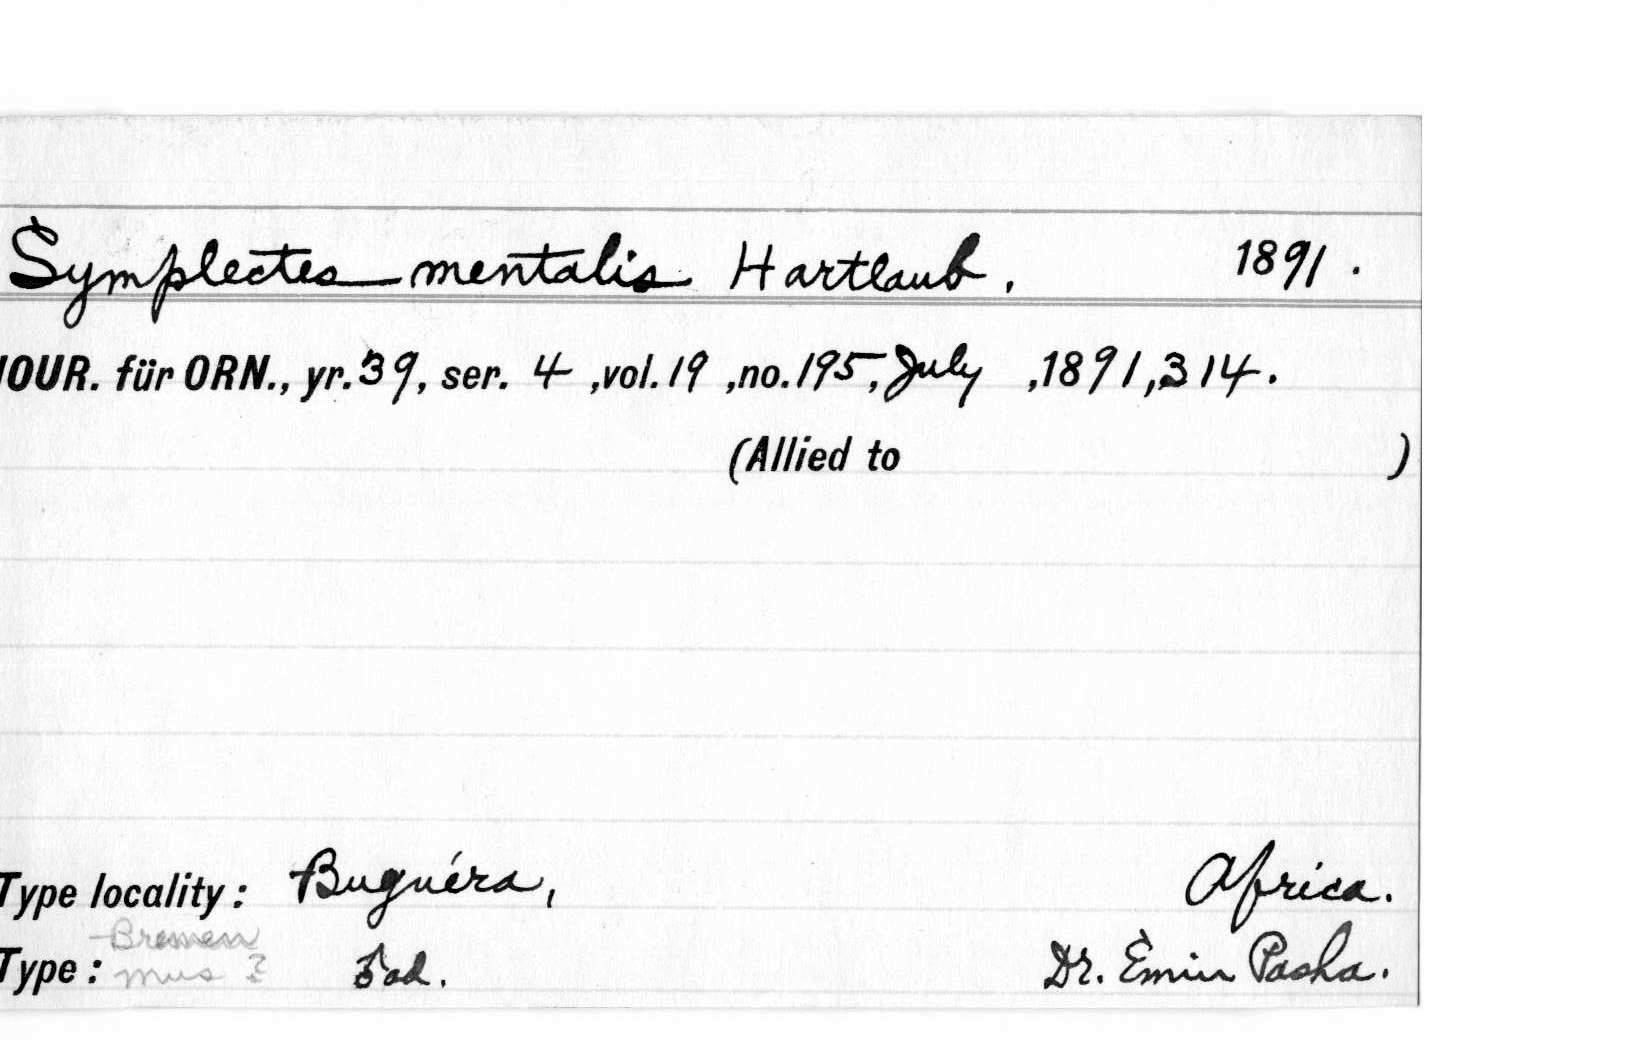 Symplectes mentalis Hartlaub. 1891.
JOUR. für ORN., yr. 39, ser. 4, vol. 19, no. 195, July, 1891, 314.
(Allied to )
Type locality: Buguéra, Africa.
Bremen
Type: mus ? ad. Dr. Emin Pasha.